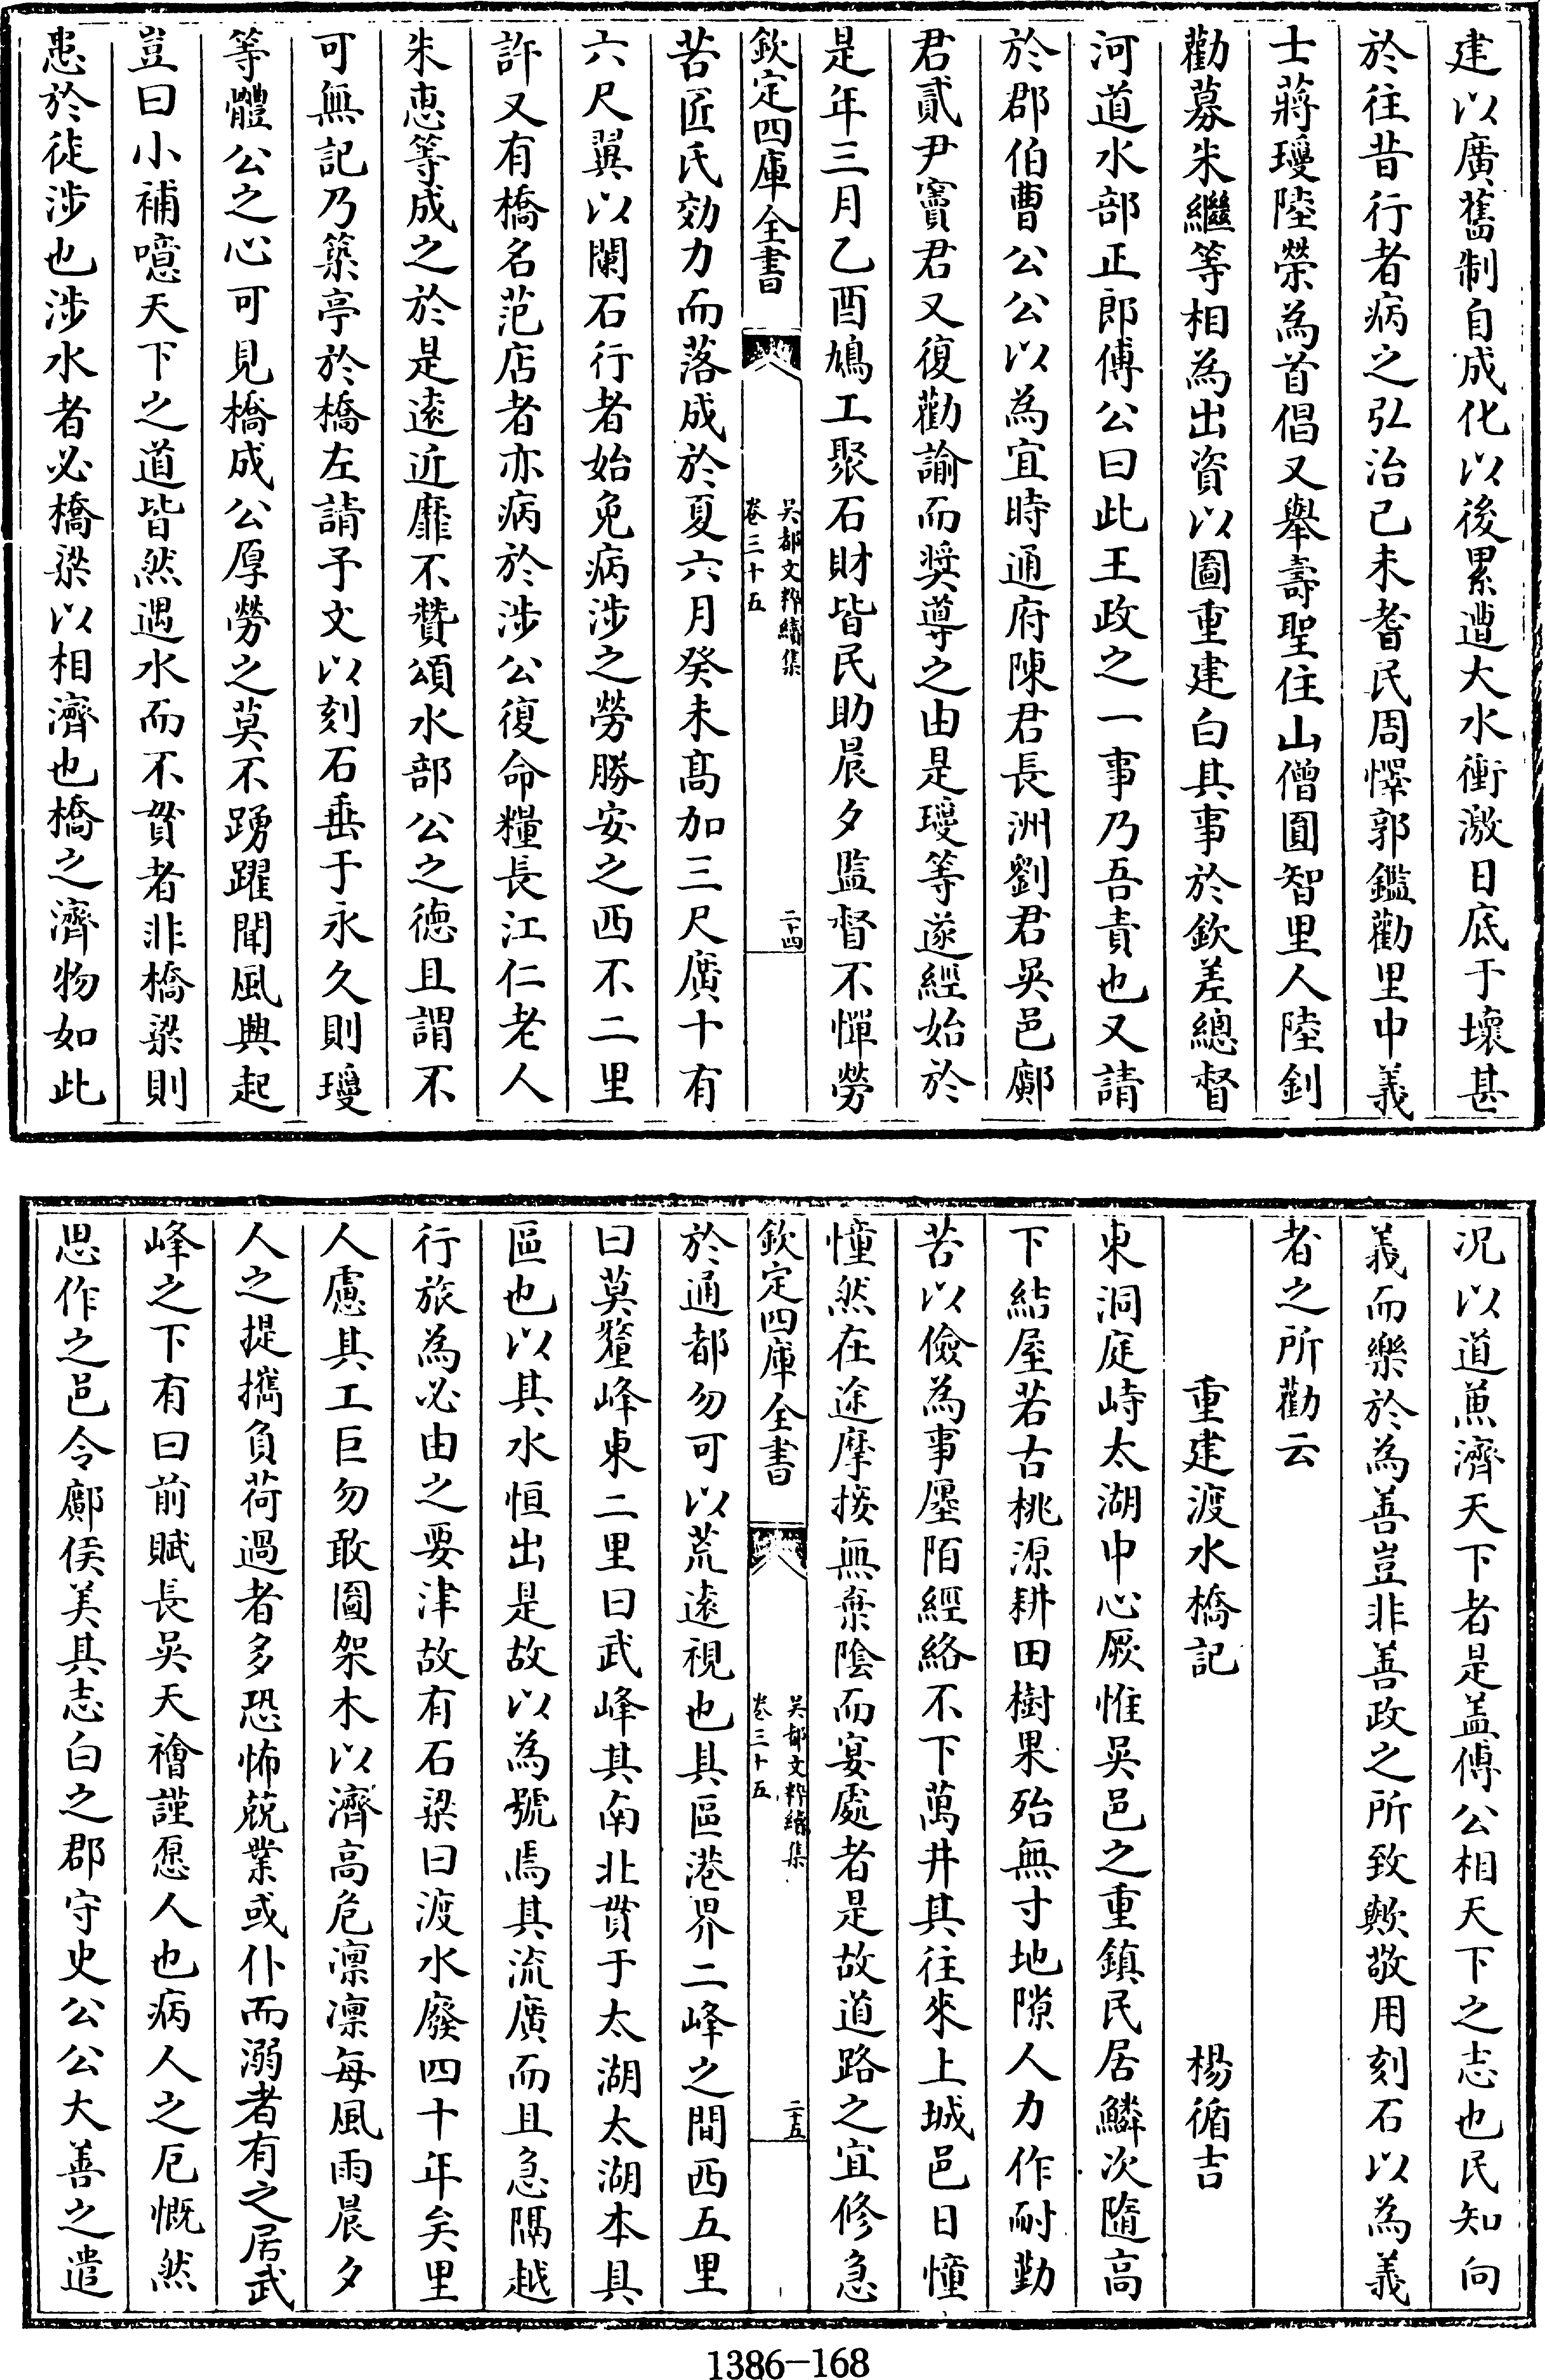 建以廣舊制自成化以後累遭大水衝激日底于壞甚
於往昔行者病之弘治己未耆民周懌郭鑑勸里中義
士蔣瓊陸榮為首倡又舉壽聖住山僧圓智里人陸釗
勸募朱繼等相為出資以圖重建白其事於欽差總督
河道水部正郎傅公曰此王政之一事乃吾責也又請
於郡伯曹公公以為宜時通府陳君長洲劉君吳邑鄺
君貳尹竇君又復勸諭而奬導之由是瓊等遂經始於
是年三月乙酉鳩工聚石財皆民助晨夕監督不憚勞
欽定四庫全書
吳都文粹續集
卷三十五
二十四
苦匠氏効力而落成於夏六月癸未髙加三尺廣十有
六尺翼以闌石行者始免病涉之勞勝安之西不二里
許又有橋名范店者亦病於涉公復命糧長江仁老人
朱恵等成之於是逺近靡不贊頌水部公之德且謂不
可無記乃築亭於橋左請予文以刻石垂于永久則瓊
等體公之心可見橋成公厚勞之莫不踴躍聞風興起
豈曰小補噫天下之道皆然遇水而不貫者非橋梁則
患於徒涉也涉水者必橋梁以相濟也橋之濟物如此
况以道兼濟天下者是盖傅公相天下之志也民知向
義而樂於為善豈非善政之所致歟敬用刻石以為義
者之所勸云
重建渡水橋記
楊循吉
東洞庭峙太湖中心厥惟吳邑之重鎮民居鱗次隨高
下結屋若古桃源耕田樹果殆無寸地隙人力作耐勤
苦以儉為事廛陌經絡不下萬井其往來上城邑日憧
憧然在途摩接無棄陰而宴處者是故道路之宜修急
欽定四庫全書
吳都文粹續集
卷三十五
二十五
於通都勿可以荒逺視也具區港界二峰之間西五里
曰莫釐峰東二里曰武峰其南北貫于太湖太湖本具
區也以其水恒出是故以為號焉其流廣而且急隔越
行旅為必由之要津故有石梁曰渡水廢四十年矣里
人慮其工巨勿敢圖架木以濟高危凛凛每風雨晨夕
人之提攜負荷過者多恐怖兢業或仆而溺者有之居武
峰之下有曰前賦長吳天禬謹愿人也病人之厄慨然
思作之邑令鄺侯美其志白之郡守史公公大善之遣
1386-168